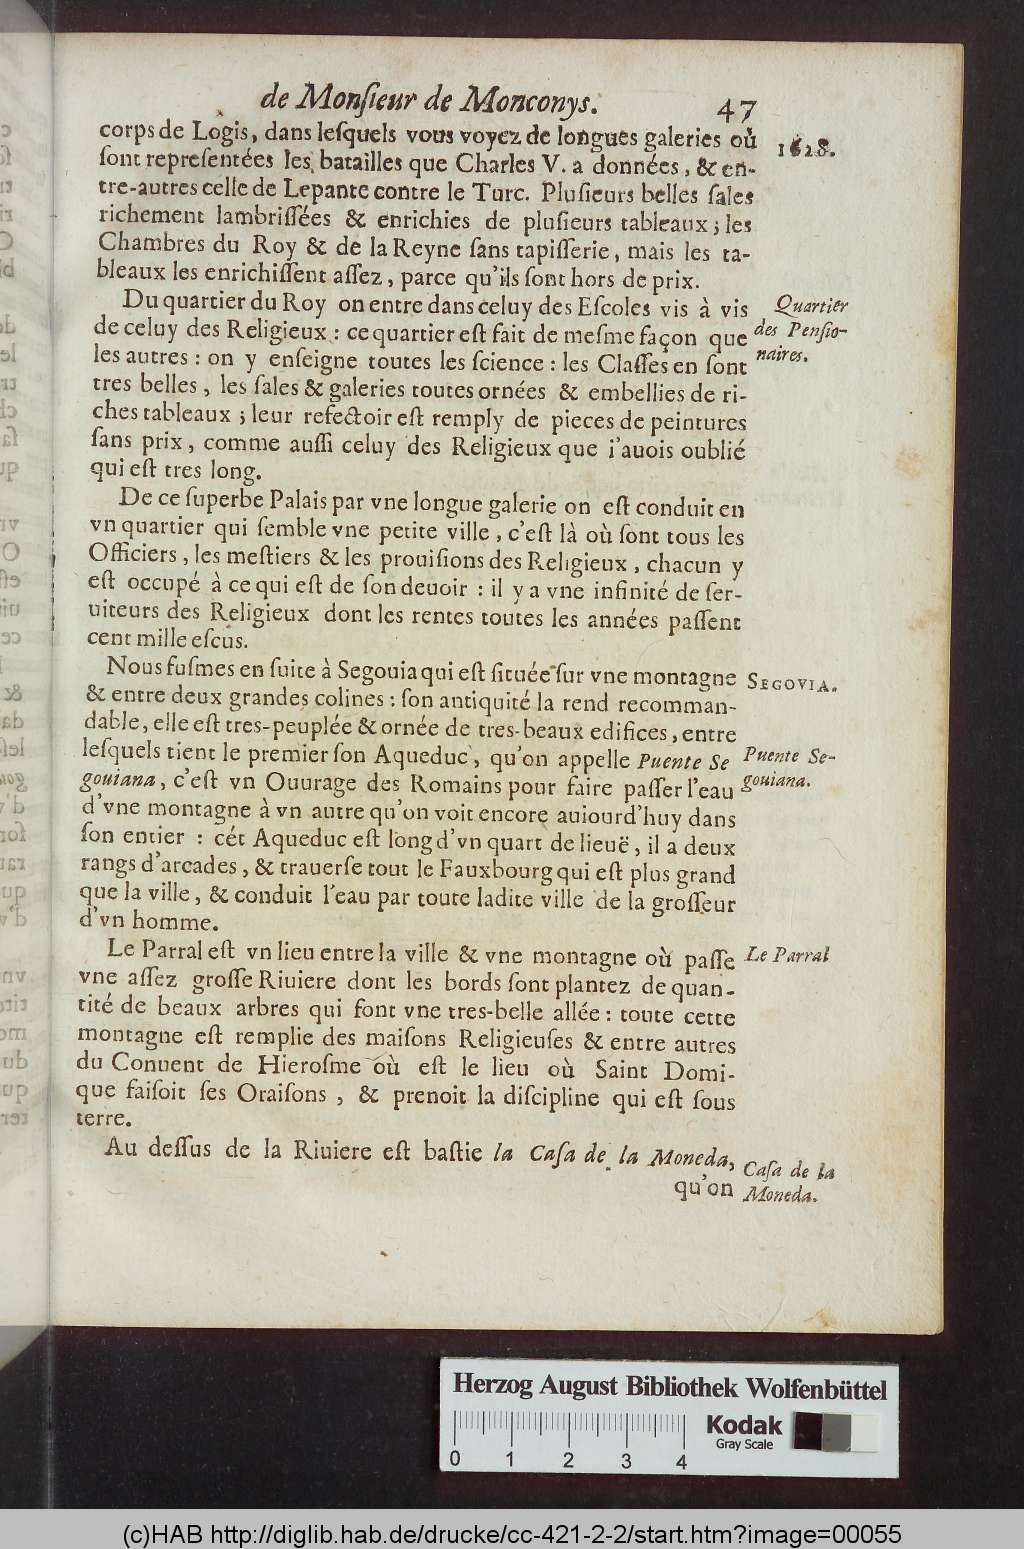 de Monſieur de Monconys. 47
corps de Logis, dans leſquels vous voyez de longues galeries où
1628.
ſont repreſentées les batailles que Charles V. a données, & en-
tre-autres celle de Lepante contre le Turc. Pluſieurs belles ſales
richement lambriſſées & enrichies de pluſieurs tableaux; les
Chambres du Roy & de la Reyne ſans tapiſſerie, mais les ta-
bleaux les enrichiſſent aſſez, parce qu'ils ſont hors de prix.
Du quartier du Roy on entre dans celuy des Eſcoles vis à vis
Quartier
de celuy des Religieux: ce quartier eſt fait de meſme façon que
des Penſio-
les autres: on y enſeigne toutes les ſcience: les Claſſes en ſont
naires.
tres belles, les ſales & galeries toutes ornées & embellies de ri-
ches tableaux; leur refectoir eſt remply de pieces de peintures
ſans prix, comme auſſi celuy des Religieux que i'auois oublié
qui eſt tres long.
De ce ſuperbe Palais par vne longue galerie on eſt conduit en
vn quartier qui ſemble vne petite ville, c'eſt là où ſont tous les
Officiers, les meſtiers & les prouiſions des Religieux, chacun y
eſt occupé à ce qui eſt de ſon deuoir: il y a vne infinité de ſer-
uiteurs des Religieux dont les rentes toutes les années paſſent
cent mille eſcus.
Nous fuſmes en ſuite à Segouia qui eſt ſituée ſur vne montagne
SEGOVIA.
& entre deux grandes colines: ſon antiquité la rend recomman-
dable, elle eſt tres-peuplée & ornée de tres-beaux edifices, entre
leſquels tient le premier ſon Aqueduc, qu'on appelle Puente Se
Puente Se-
gouiana, c'eſt vn Ouurage des Romains pour faire paſſer l'eau
gouiana.
d'vne montagne à vn autre qu'on voit encore auiourd'huy dans
ſon entier: cét Aqueduc eſt long d'vn quart de lieuë, il a deux
rangs d'arcades, & trauerſe tout le Fauxbourg qui eſt plus grand
que la ville, & conduit l'eau par toute ladite ville de la groſſeur
d'vn homme.
Le Parral eſt vn lieu entre la ville & vne montagne où paſſe
Le Parral
vne aſſez groſſe Riuiere dont les bords ſont plantez de quan-
tité de beaux arbres qui font vne tres-belle allée: toute cette
montagne eſt remplie des maiſons Religieuſes & entre autres
du Conuent de Hieroſme où eſt le lieu où Saint Domi-
que faiſoit ſes Oraiſons, & prenoit la diſcipline qui eſt ſous
terre.
Au deſſus de la Riuiere eſt baſtie la Caſa de la Moneda,
Caſa de la
qu'on
Moneda.
Herzog August Bibliothek Wolfenbüttel
Kodak
Gray Scale
0 1 2 3 4
(c)HAB http://diglib.hab.de/drucke/cc-421-2-2/start.htm?image=00055